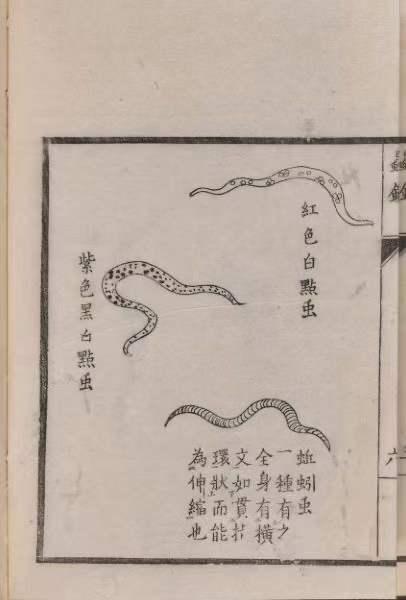 六
紅色白點虫
蚯蚓虫
一種有之
全身有橫
文如貫扵
環狀而能
為伸縮也
紫色黑白點虫